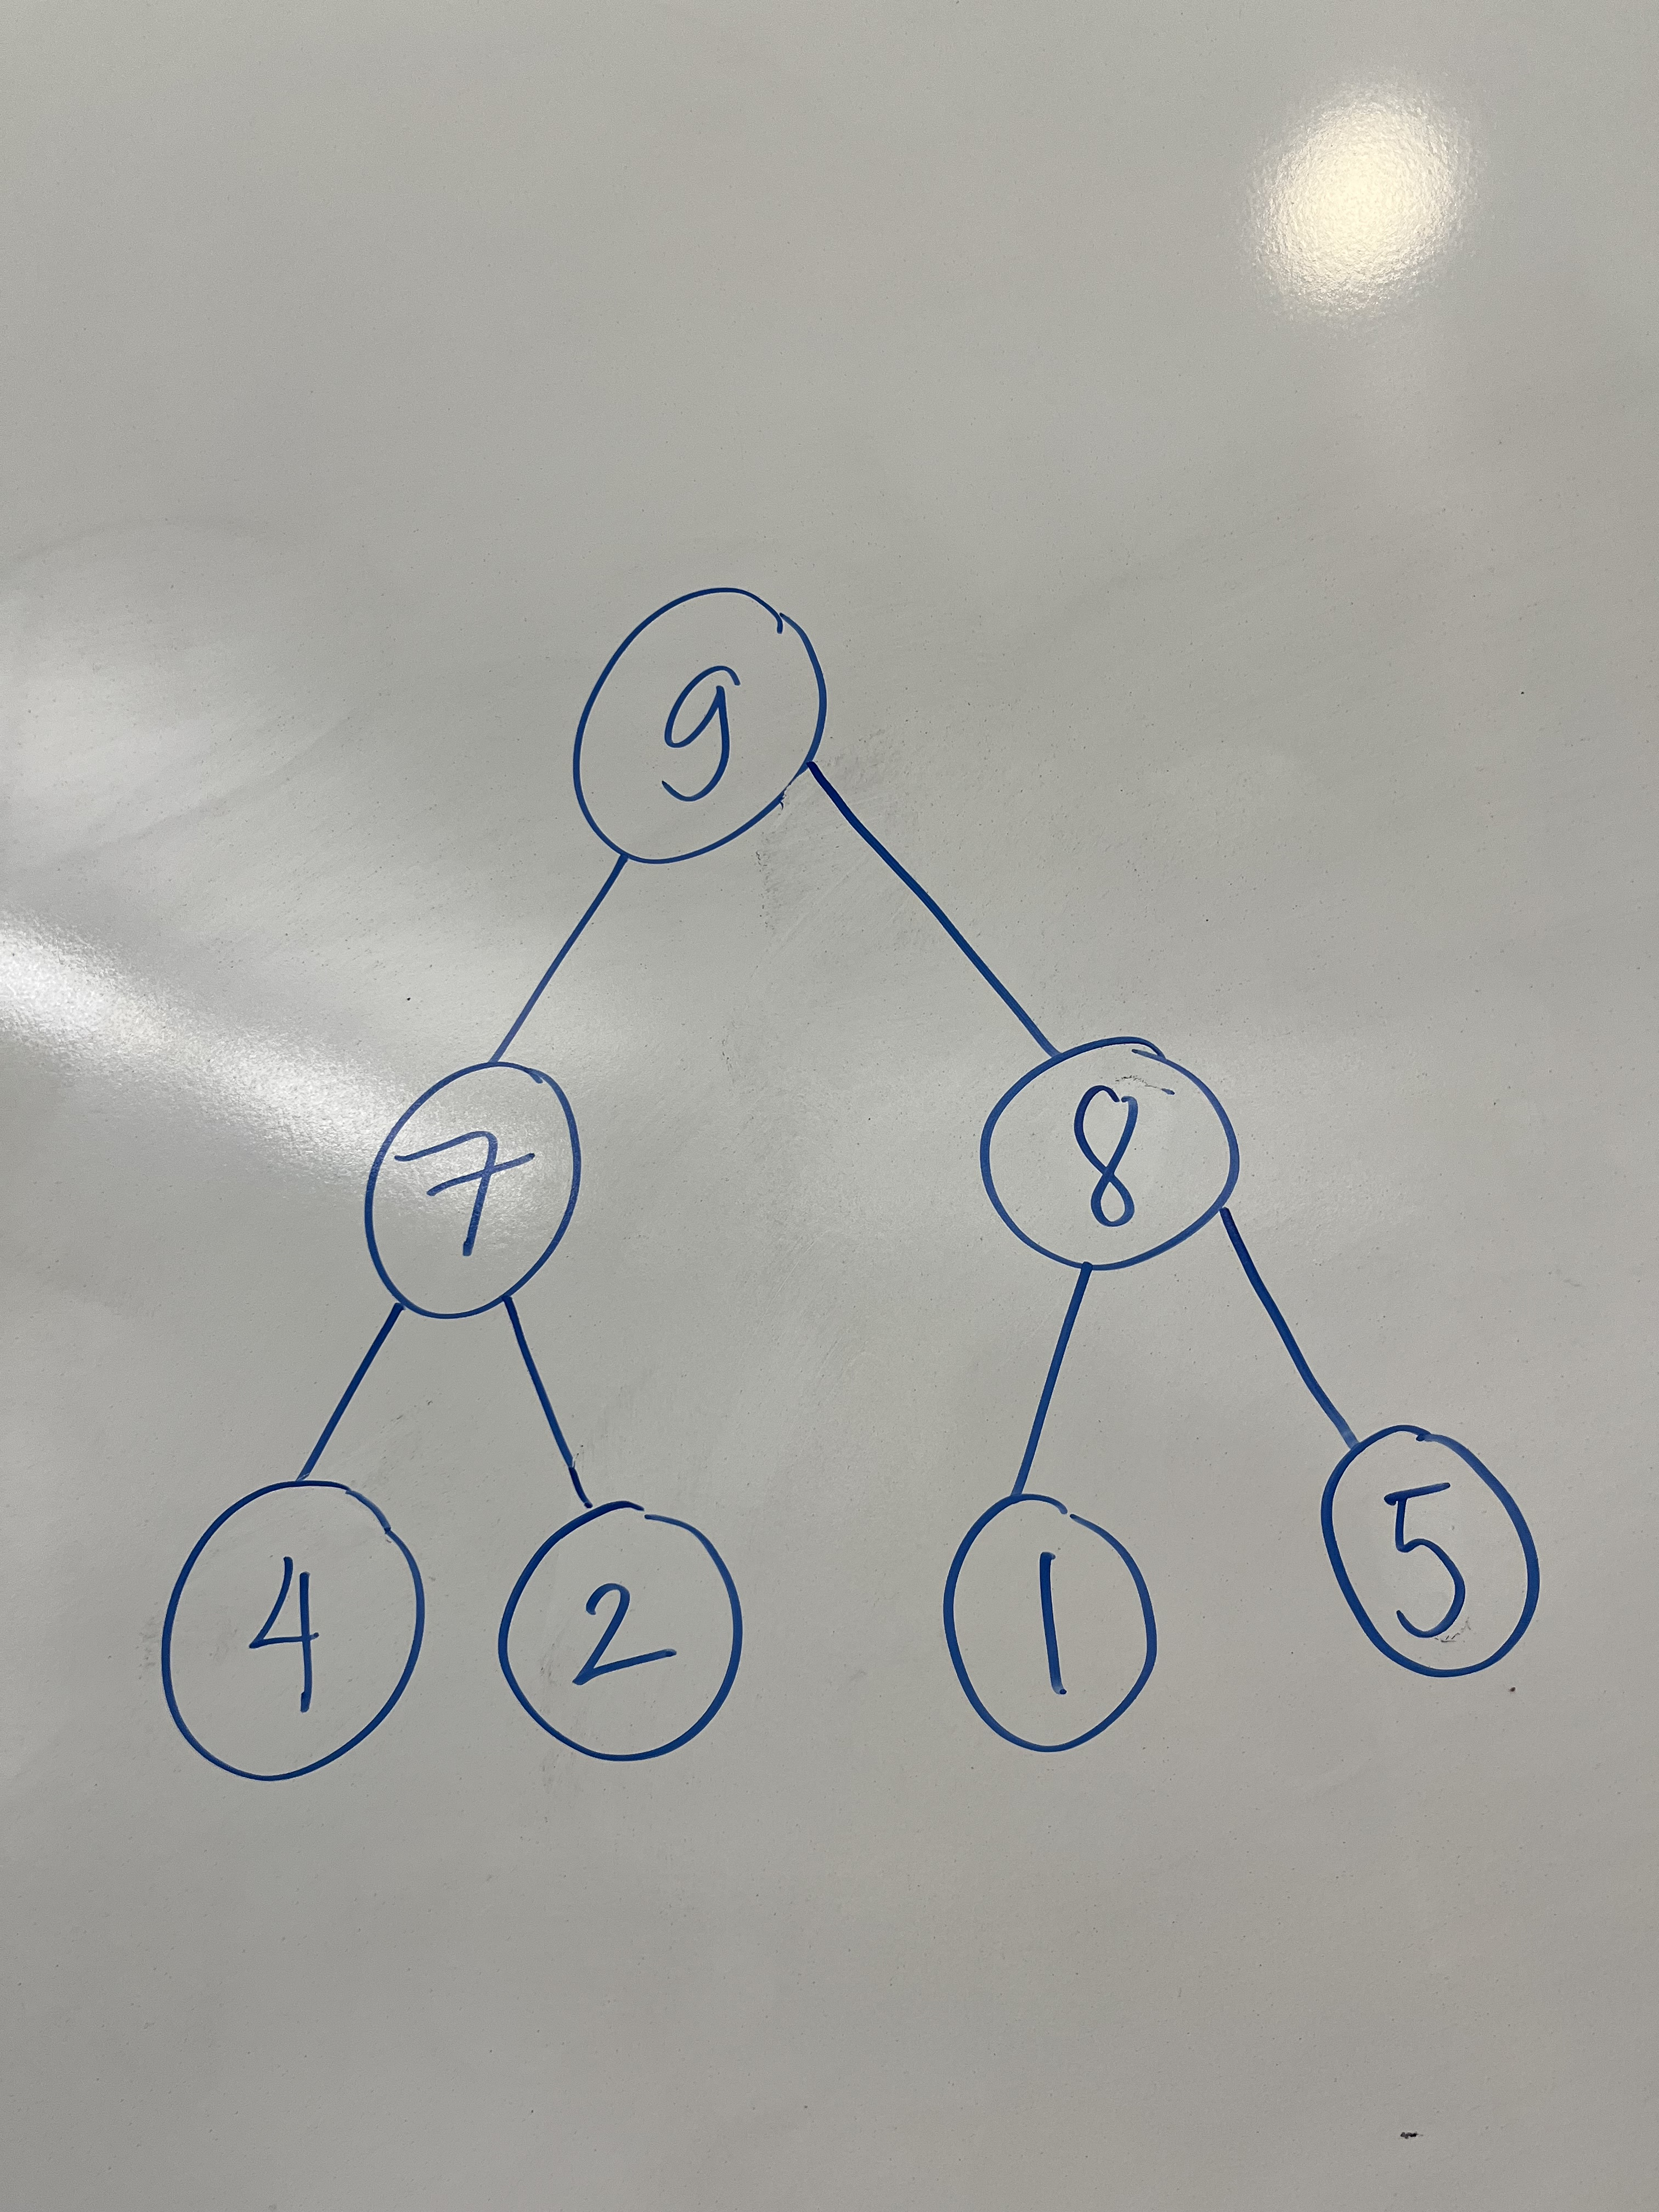 9
7 8
4 2 1 5